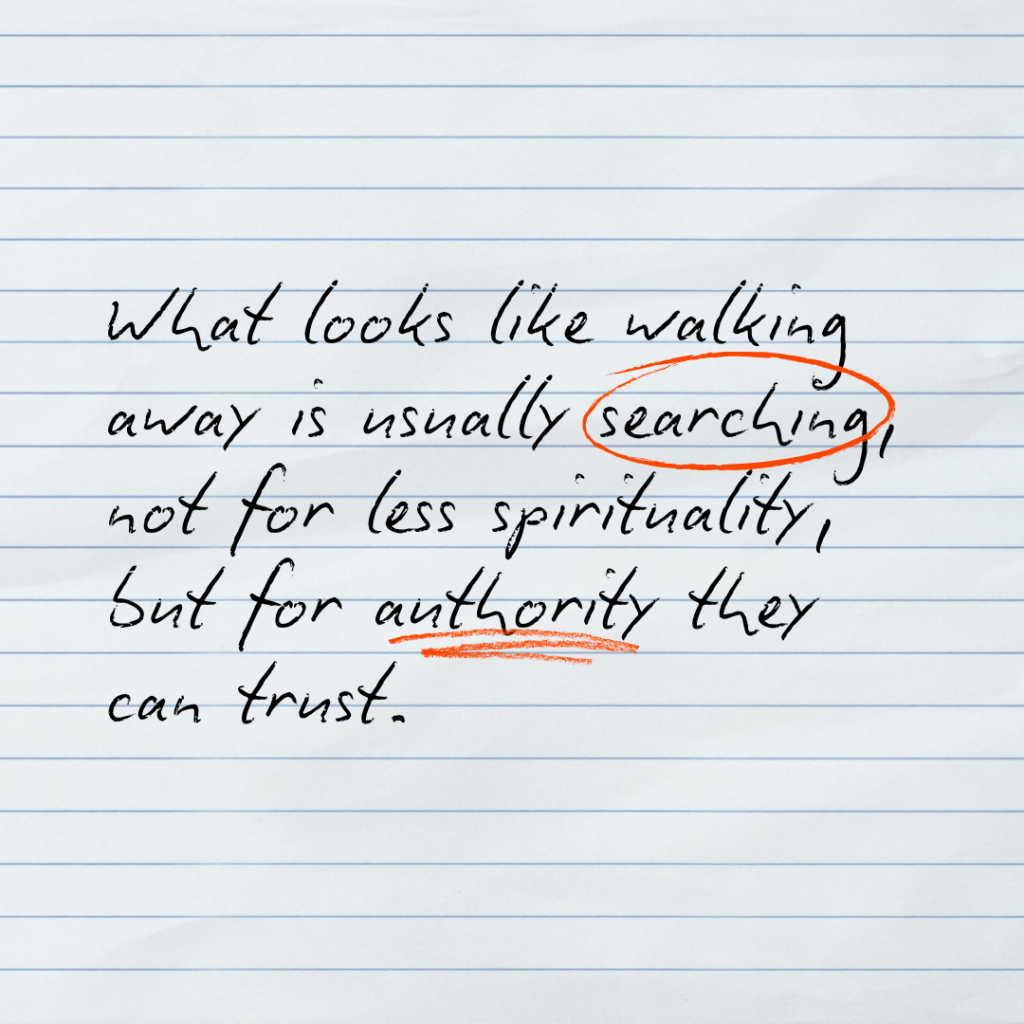 What looks like walking
away is usually searching,
not for less spirituality,
but for authority they
can trust.